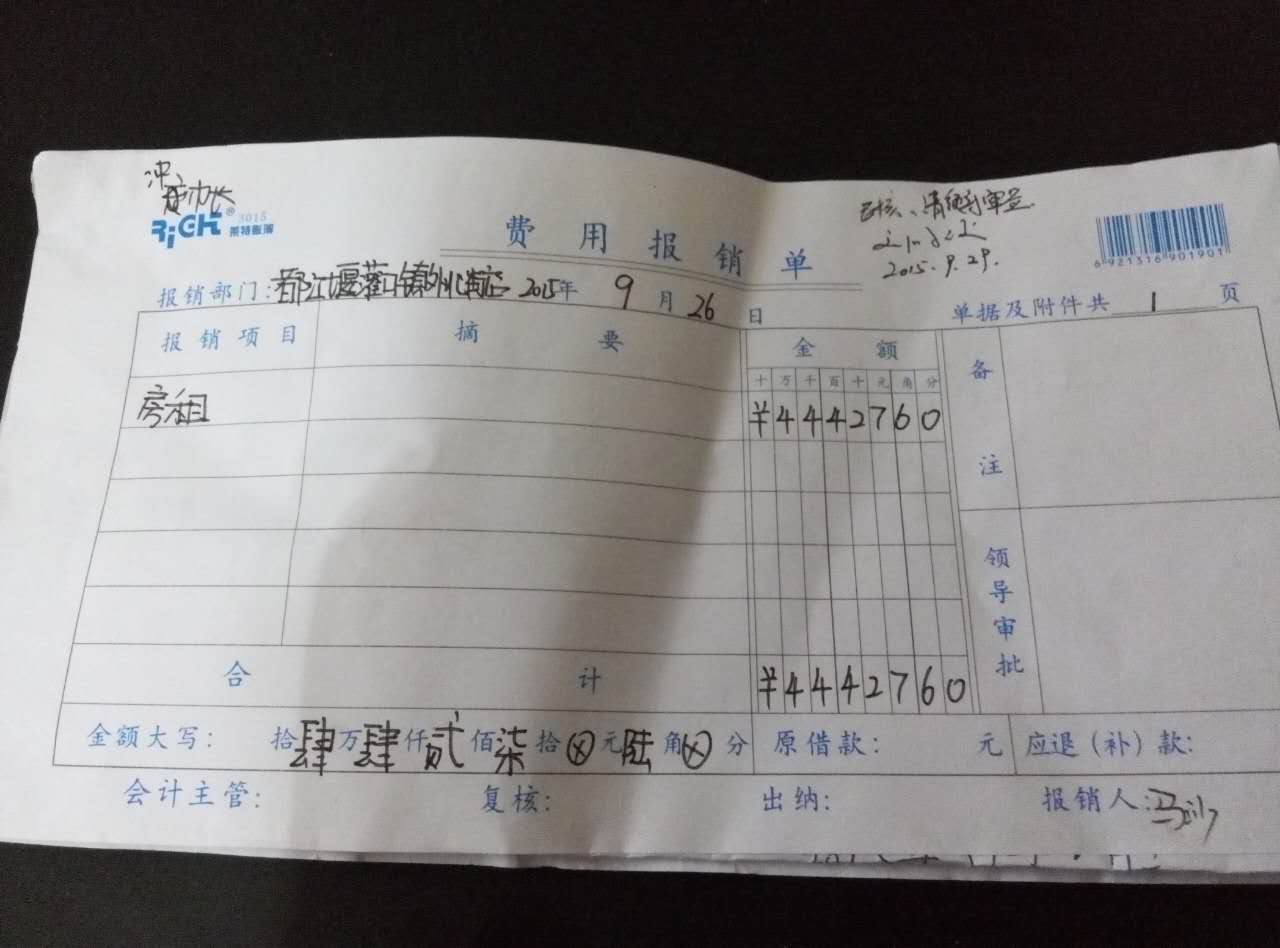 冲
RiGHT® 3015
莱特账簿
费用报销单
2015.9.29.
6 921316 901901
报销部门:都江堰灌口镇 2015年 9月26日
单据及附件共 1 页
报销项目 摘要 金额 备注
十万千百十元角分
房租 ¥4442760
领导审批
合计 ¥4442760
金额大写: 拾肆万肆仟贰佰柒拾⊗元陆角⊗分 原借款: 元 应退(补)款:
会计主管: 复核: 出纳: 报销人: